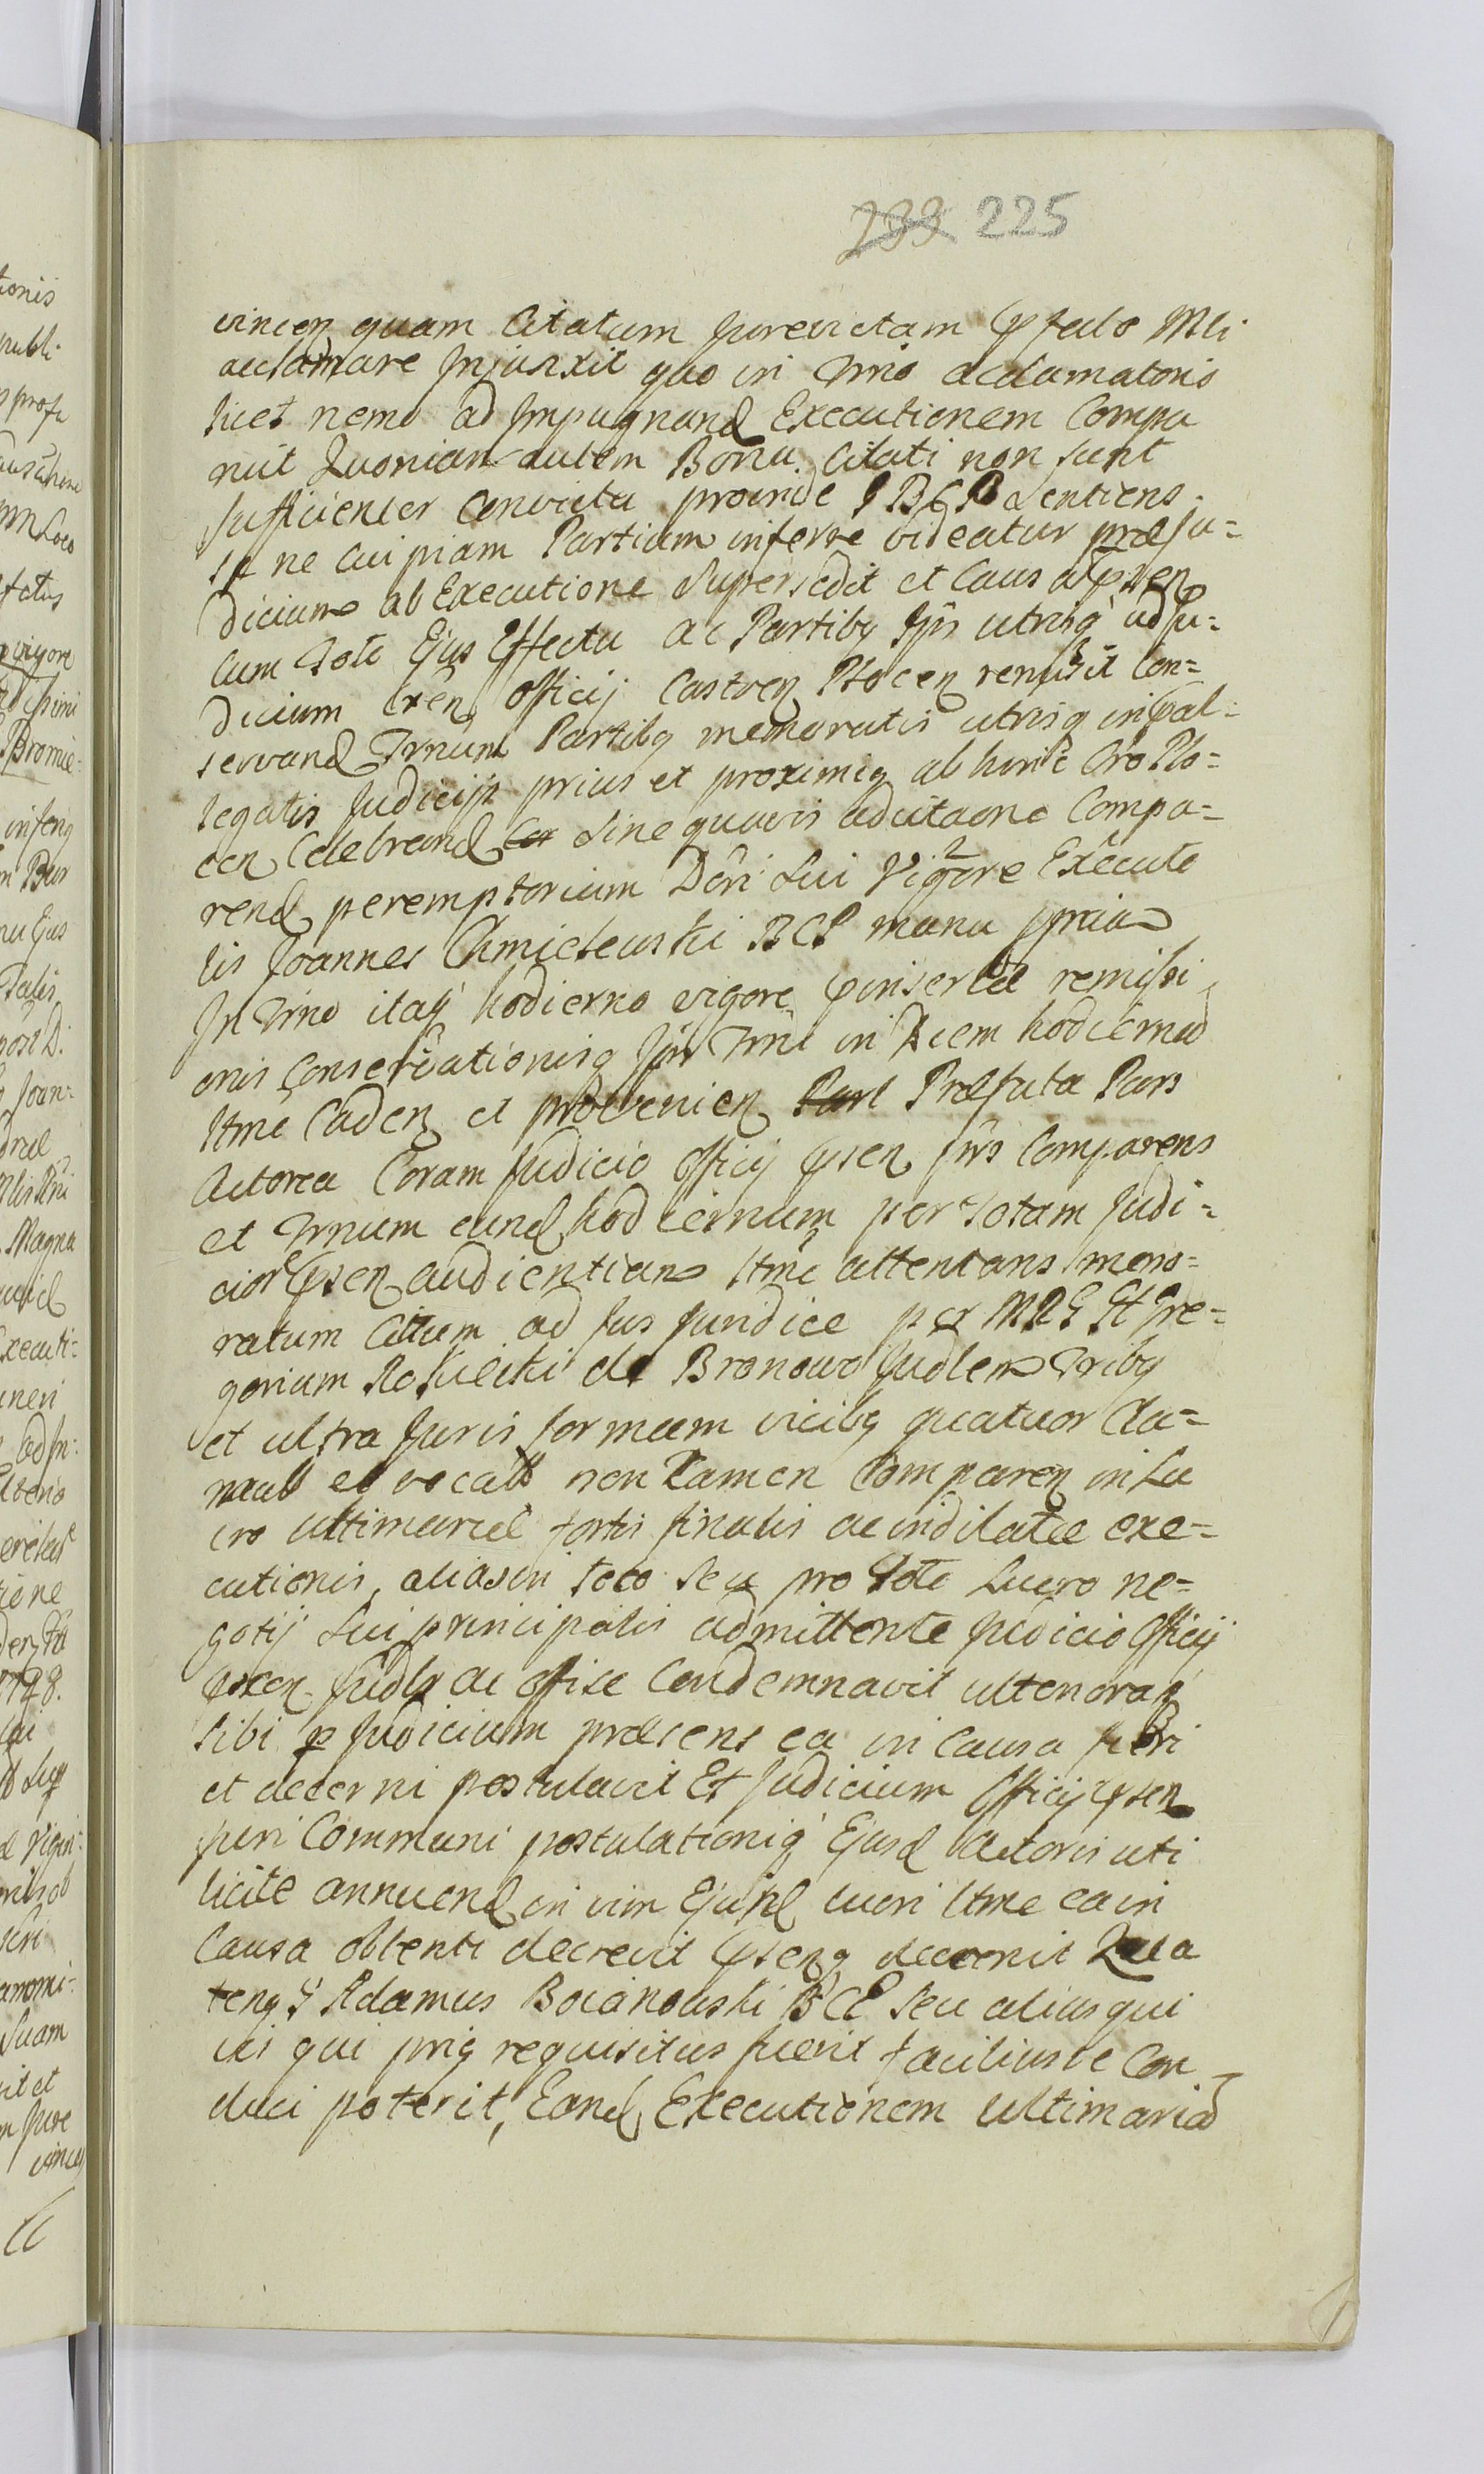 233 225
vincen quam Citatum Jurevictam Mli
acclamare Injunxit quo in Trno acclamatorio
licet nemo ad Impugnand Executionem Compa
ruit Quoniam autem Bona Citati non sunt
sufficienter Convicta proinde sentiens
ne cuipiam Partium inferre videatur præju=
dicium ab Executione Supersedit et Causa
cum toto Ejus Effectu ac Partibq Ipsis utrisq adju=
dicium Officij Castren Plocen remisit Con=
servand Trnum Partibq memoratis utrisq in
legatis Judicijs prius et proximiq ab hinc Pło=
cen Celebrand sine quavis adcitaone Compa=
rend peremptorium Dcri Sui Vigore Executo
lis Joannes Chmielewski BCP manu ppria
In Trno itaq hodierno vigore remissi
onis Conservationisq Trni in Diem hodierna
ltme Caden et provenien Præfata Pars
Actorea Coram Judicio Officij Comparens
et Trnum eund hodiernum per totam Judi=
cior audientiam ltme attentans memo=
ratum Citum ad Jus Juridice per Gre=
gorium Rokicki de Bronowo Judlem Tribq
et ultra Juris formam vicibq quatuor Cla=
matt et vocatt non tamen Comparen in Lu
cro ultimariæ fortis finalis ac indilatæ exe=
cutionis, alias in toto seu pro toto Lucro ne=
gotij sui principalis admittente Judicio Officij
ac Offise Condemnavit ulteriora
sibi p Judicium præsens ea in Causa fieri
et decerni postulavit Et Judicium Officij
Juri Communi postulationiq Ejusd Actoris uti
licite annuend in vim Ejusd lucri ltme ea in
Causa obtenti decrevit decernit Qua
tenq Adamus Bocianowski BCP seu alius qui
vis qui priq requisitus fuerit faciliusve Con
duci poterit, Eand Executionem Ultimaria